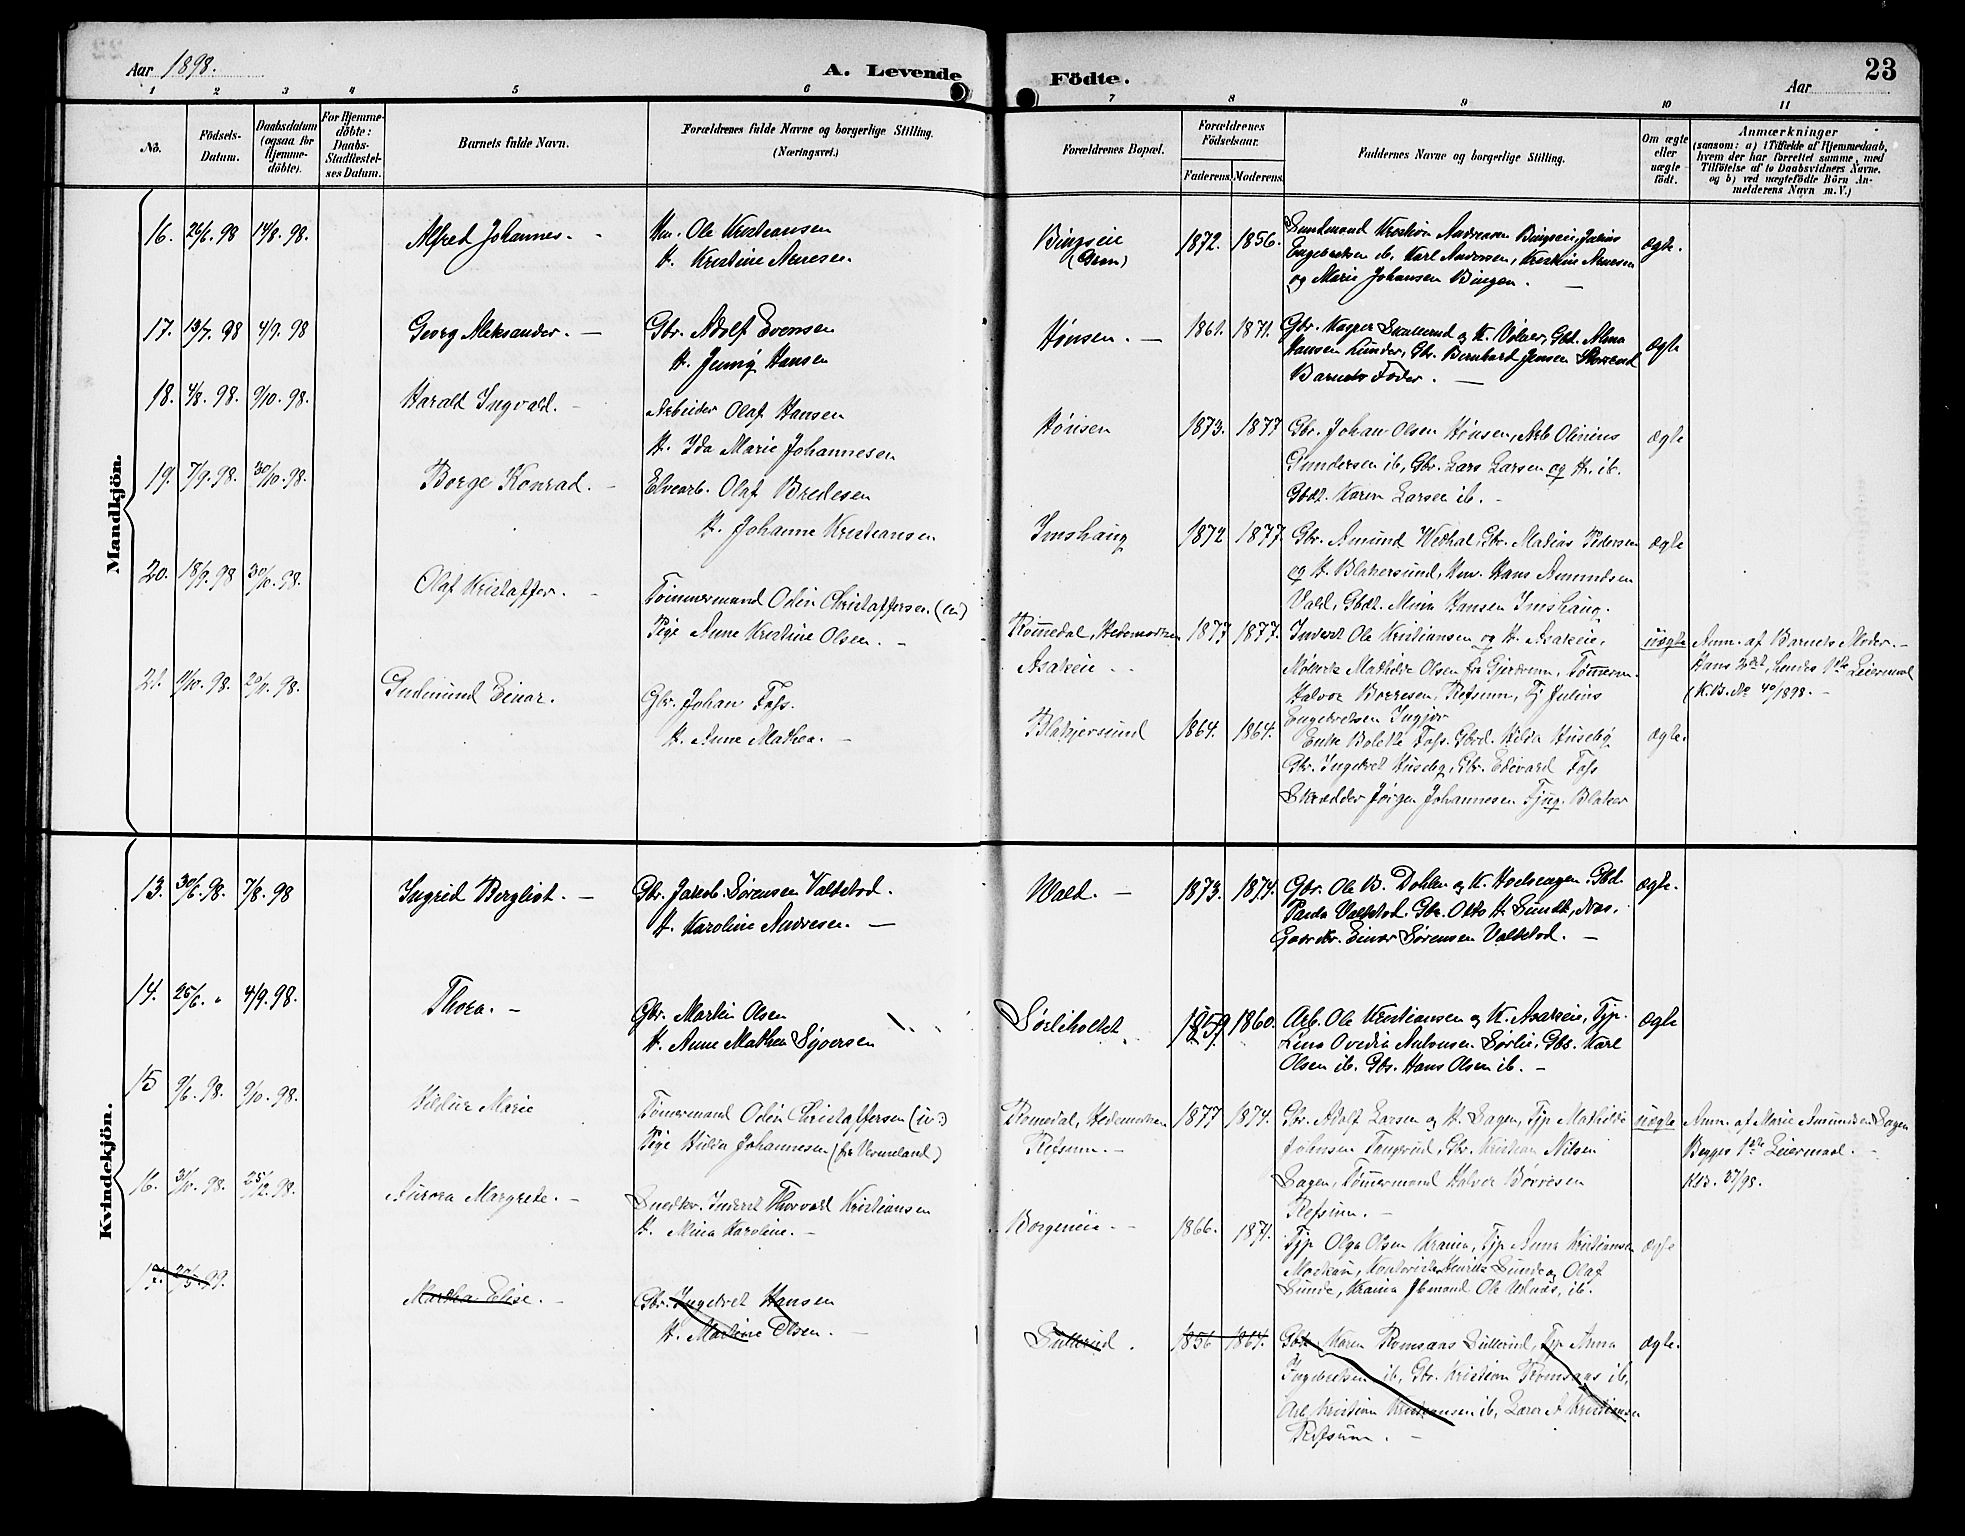 Aar 1898.
A. Levende Födte.
Aar
23
1 2 3 4 5 6 7 8 9 10 11
No.
Födsels-Datum.
Daabsdatum (ogsaa for Hjemmedöbte).
For Hjemmedöbte: Daabs-Stadfæstelses Datum.
Barnets fulde Navn.
Forældrenes fulde Navne og borgerlige Stilling. (Næringsvei.)
Forældrenes Bopæl.
Forældrenes Födselsaar.
Faderens. Moderens.
Faddernes Navne og borgerlig Stilling.
Om ægte eller uægte födt.
Anmærkninger
(sansom: a) i Tilfælde af Hjemmedaab, hvem der har forrettet samme, med Tilföielse af to Daabsvidners Navne, og b) ved uægtefödte Börn Anmelderens Navn m. V.)
Mandkjön.
16. 26/6. 98 14/8. 98. Alfred Johannes. - Hm. Ole Kristiansen
H. Kristine Arnesen
Bingseie (Gran) 1872. 1856. Sundmand Kristian Andreasen Bingseie, Julius
Engebretsen ib, Karl Andersen, Kristine Arnesen
og Marie Johansen Bingen. - ægte.
17. 13/7. 98 4/9. 98 Georg Aleksander. - Gbr. Adolf Evensen
H. Jenny Hansen
Hønsen. - 1861. 1871. Gbr. Kasper Skullerud og H. Gbd. Alma
Hansen Lunder, Gbr. Bernhard Jensen
Barnets Fader. - ægte
18. 4/8. 98. 9/10. 98. Harald Ingvald. - Arbeider Olaf Hansen
H. Ida Marie Johannesen
Hønsen 1873. 1877 Gbr. Johan Olsen Hønsen, Arb Olinius
Gundersen ib, Gbr. Lars Larsen og H. ib.
Gbdt. Karen Larsen ib. - ægte
19. 7/9. 98. 30/10. 98. Borge Konrad. - Elvearb. Olaf Bredesen
H. Johanne Kristiansen
Imshaug 1872 1877. Gbr. Amund Wedhal, Gbr. Matias Pedersen
og H. Blakersund, Hm. Hans Amundsen
Vald, Gbdt. Mina Hansen Imshaug. ægte
20. 18/9. 98 30/10. 98. Olaf Kristoffer. - Tømmermand Odin Christoffersen
Pige Anne Kristine Olsen. -
Romedal, Hedemarken
Asakeie - 1877 1877. Inderst Ole Kristiansen og H. Asakeie,
Mathilde Olsen fra Gjerdrum, Tømmerm.
Halvor Borresen, Refsum, Tj Julius
Engebretsen Ingjer uægte Anm. af Barnets Moder. -
Hans 2det, hendes 1ste Leiermaal
(K.B. No 40/1898. -
21. 9/10. 98. 20/11. 98. Gudmund Einar. Gbr. Johan Foss.
H. Anne Mathea. -
Blakjersund 1864. 1864. Enke Bolette Foss. Gbrd. Hilda Huseby
Gbr. Ingebret Huseby, Gbr. Edevard Foss
Skrædder Jörgen Johannesen Tjug. Blaker ægte.
Kvindekjön.
13. 30/6. 98. 7/8. 98 Ingrid Bergliot. - Gbr. Jakob Sørensen Valstad.
H. Karoline Andresen. -
Wald. - 1873. 1874. Gbr. Ole B. Dohlen og H. Gbd.
Paula Valstad. Gbr. Otto H. Sundt, Næs.
Gaardbr. Einar Sørensen Valstad. - ægte.
14. 25/6. " 4/9. 98. Thora. - Gbr. Martin Olsen
H. Anne Mathea Syversen
Sørliholtet 1859 1860. Arb. Ole Kristiansen og H. Asakeie, Tjp.
Lina Ovedia Antonsen Sørlie, Gbs. Karl
Olsen ib. Gbr. Hans Olsen ib. - ægte
15 9/6. 98. 9/10. 98. Hildur Marie Tømermand Odin Christoffersen
Pige Hilda Johannesen (fra Vermeland)
Romedal, Hedemarken
Refsum. - 1877 1874. Gbr. Adolf Larsen og H. Hagen, Tjp Mathilde
Johnsen Tangerud, Gbr. Kristian Nilsen
Hagen, Tømmermand Halvor Børresen
Refsum. - uægte Anm. af Marie Amundsen Hagen
Begges 1ste Leiermaal. -
KB. 37/98.
16. 31/10. 98. 25/12. 98. Aurora Margrete. - Snedker. Inderst Thorvald Kristiansen
H. Mina Karoline. -
Borgeneie - 1866. 1871. Tjp Olga Olsen Krania, Tjp Anna Kristiansen
Henrik Sunde og Olaf
Sunde, Krania ib. ægte
17. Martha Elise. - Gbr. Ingebret Hansen
H. Martine Olsen. -
Sullerud. 1856 1864. Gbdt. Karen Romsaas Sullerud, Tjp Anna
Ingebretsen ib, Gbr. Kristian Romsaas ib,
Arb. Kristian Kristiansen ib, Lærer A Kristiansen
Refsum. - ægte.